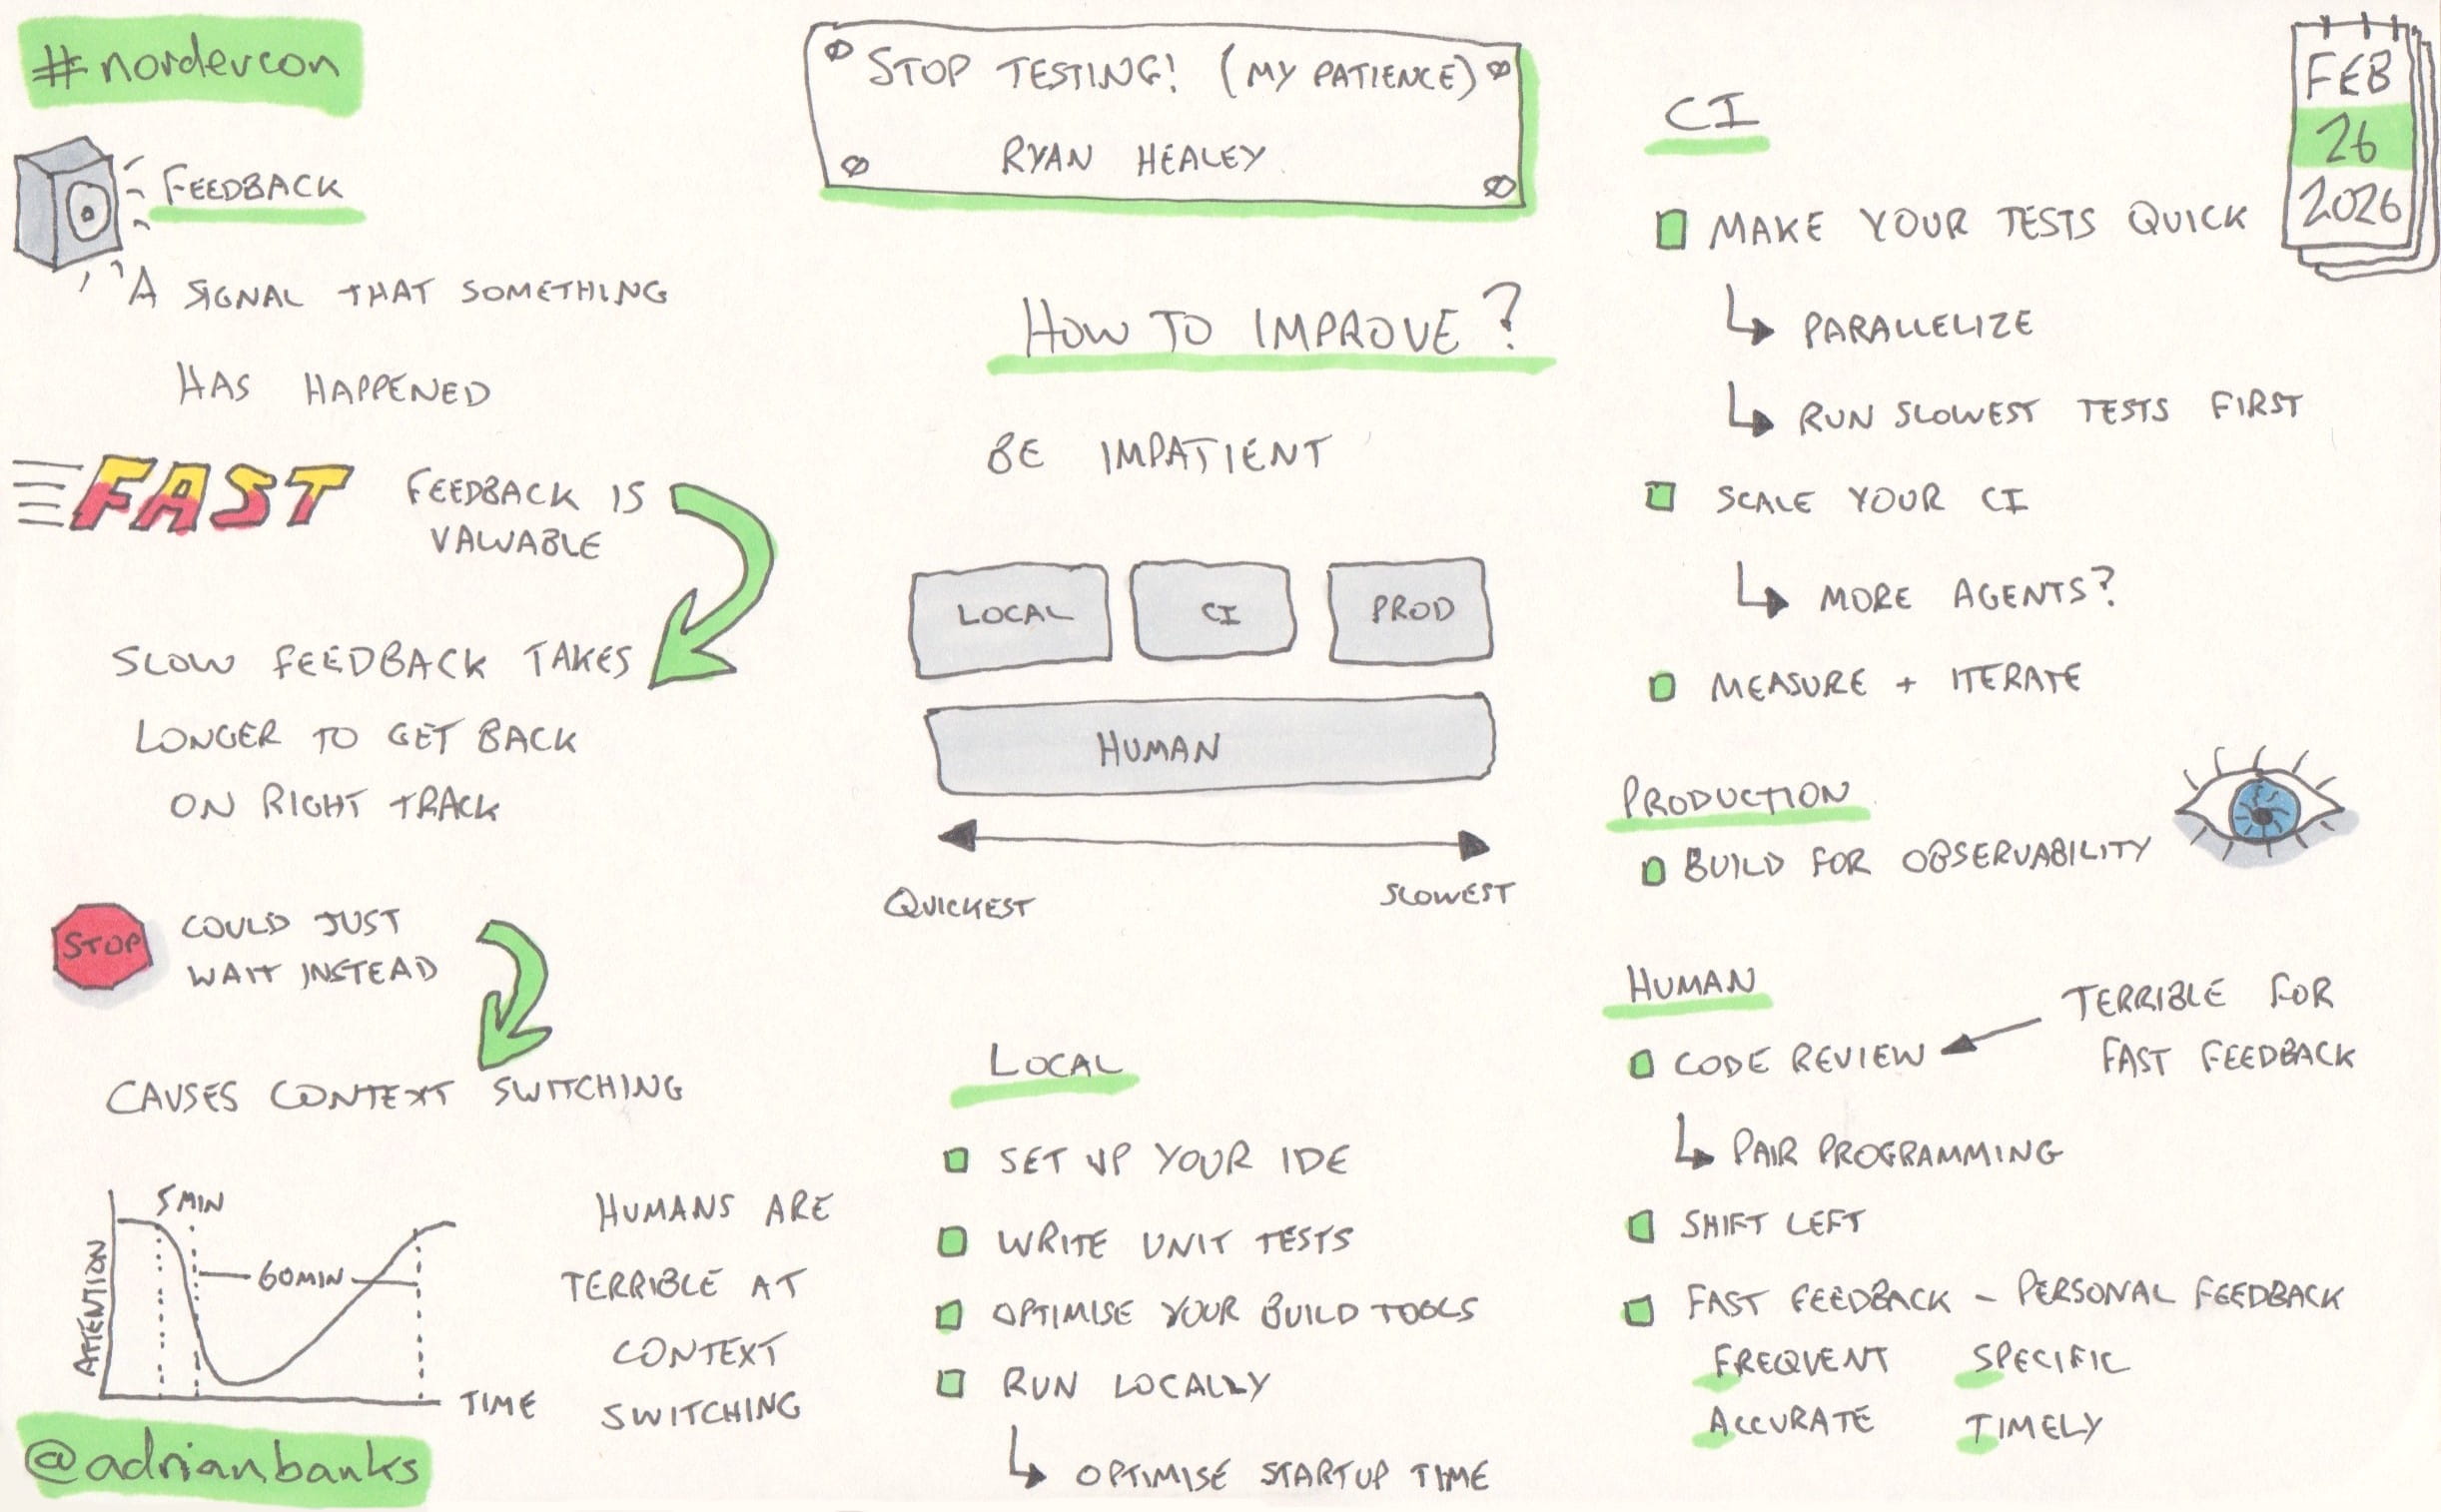 #nordevcon
STOP TESTING! (MY PATIENCE)
RYAN HEALEY
FEB
26
2026
FEEDBACK
A SIGNAL THAT SOMETHING
HAS HAPPENED
FAST
FEEDBACK IS
VALUABLE
SLOW FEEDBACK TAKES
LONGER TO GET BACK
ON RIGHT TRACK
STOP
COULD JUST
WAIT INSTEAD
CAUSES CONTEXT SWITCHING
5 MIN
60 MIN
ATTENTION
TIME
HUMANS ARE
TERRIBLE AT
CONTEXT
SWITCHING
@adrianbanks
HOW TO IMPROVE?
BE IMPATIENT
LOCAL
CI
PROD
HUMAN
QUICKEST
SLOWEST
LOCAL
SET UP YOUR IDE
WRITE UNIT TESTS
OPTIMISE YOUR BUILD TOOLS
RUN LOCALLY
OPTIMISE STARTUP TIME
CI
MAKE YOUR TESTS QUICK
PARALLELIZE
RUN SLOWEST TESTS FIRST
SCALE YOUR CI
MORE AGENTS?
MEASURE + ITERATE
PRODUCTION
BUILD FOR OBSERVABILITY
HUMAN
TERRIBLE FOR
FAST FEEDBACK
CODE REVIEW
PAIR PROGRAMMING
SHIFT LEFT
FAST FEEDBACK - PERSONAL FEEDBACK
FREQUENT SPECIFIC
ACCURATE TIMELY